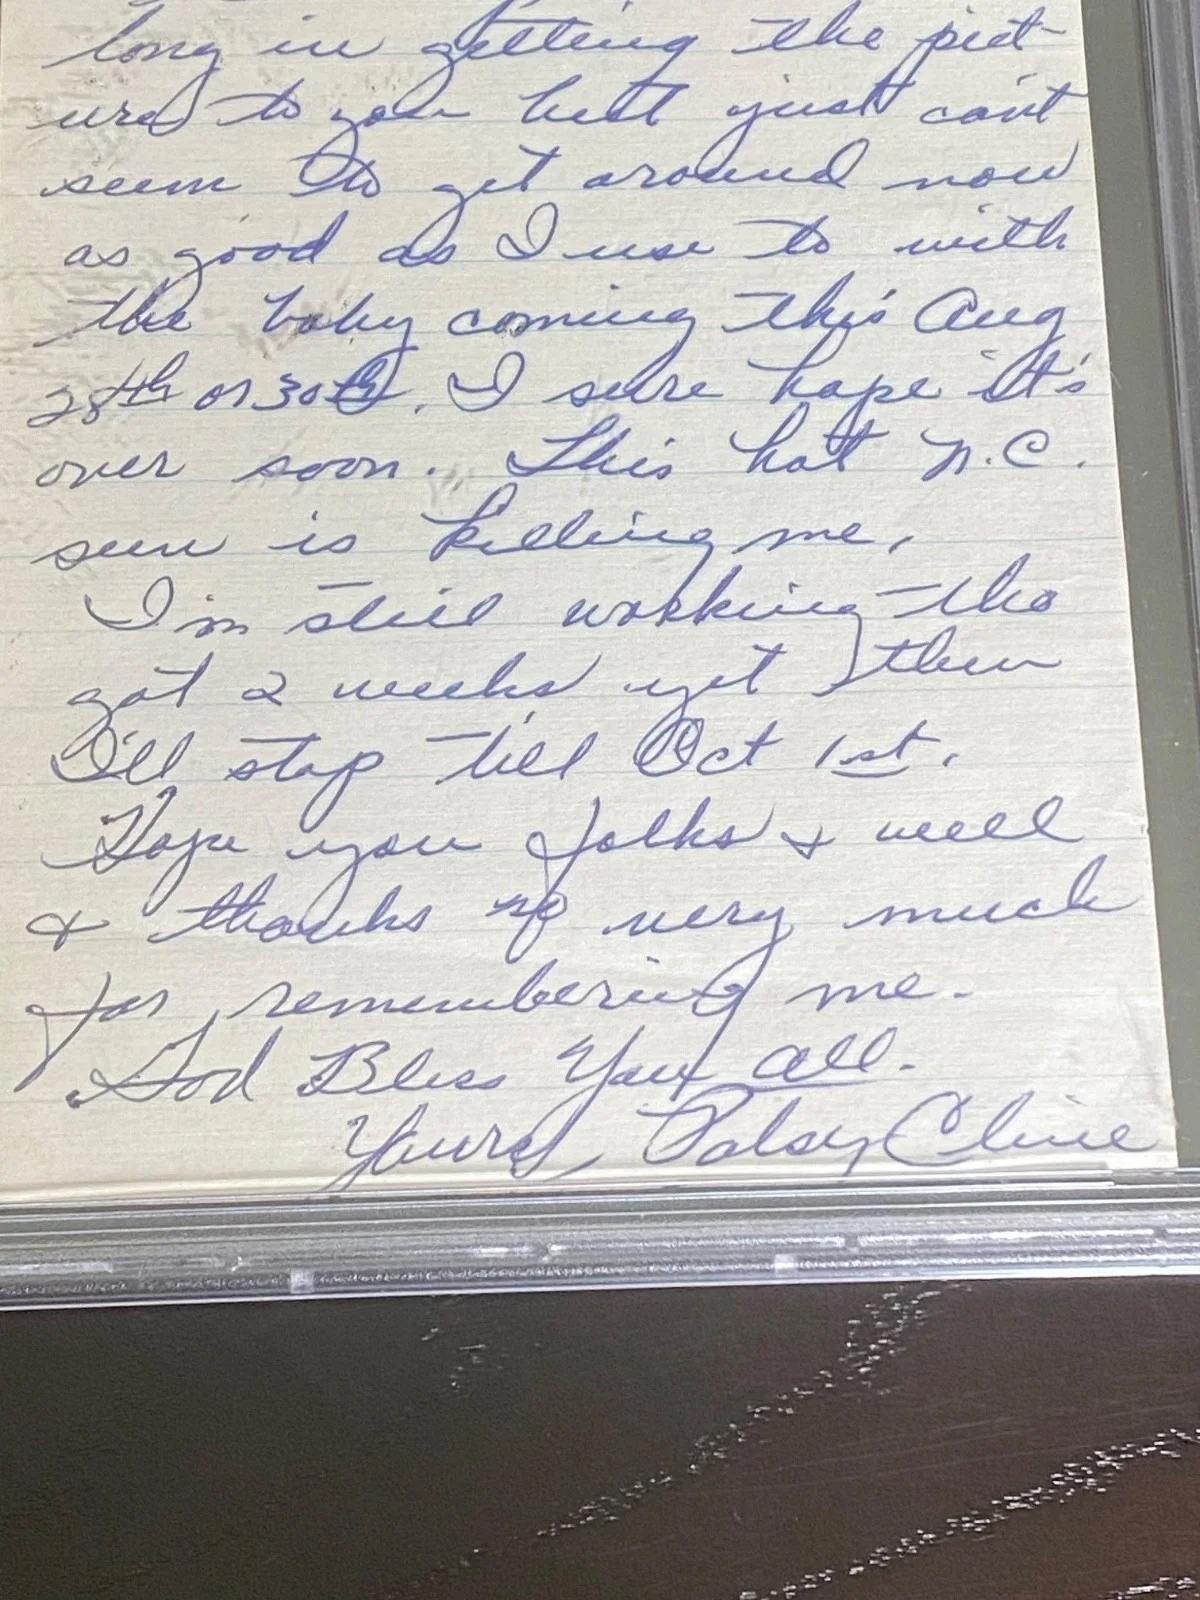 long in getting the pict-
ure to you but just can't
seem to get around now
as good as I use to with
the baby coming this Aug
28th or 30th. I sure hope it's
over soon. This hot N.C.
sun is killing me.
I'm still working tho
got 2 weeks yet then
I'll stop till Oct 1st.
Hope you folks + well
+ thanks so very much
for remembering me.
God Bless You all.
Yours, Patsy Cline